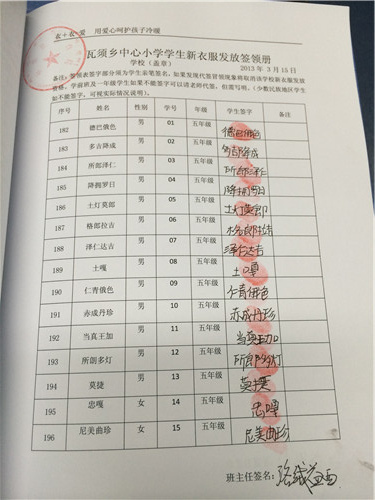 衣+衣=爱 用爱心呵护孩子冷暖
瓦须乡中心小学学生新衣服发放签领册
学校（盖章） 2013 年 3 月 15 日
备注：签领表签字部分须为学生亲笔签名，如果发现代签冒领现象将取消该学校新衣服发放
资格，学前班及一年级学生如果不能签字可以请老师代签，但需写明，（少数民族地区学生
如不能签字，可视实际情况说明）。
序号 姓名 性别 学号 年级 学生签字 备注
182 德巴俄色 男 01 五年级 德巴俄色
183 多吉降成 男 02 五年级 多吉降成
184 所郎泽仁 男 03 五年级 所郎泽仁
185 降拥罗日 男 04 五年级 降拥罗日
186 土灯莫郎 男 05 五年级 土灯莫郎
187 格郎拉吉 男 06 五年级 格郎拉吉
188 泽仁达吉 男 07 五年级 泽仁达吉
189 土嘎 男 08 五年级 土嘎
190 仁青俄色 男 09 五年级 仁青俄色
191 赤成丹珍 男 10 五年级 赤成丹珍
192 当真王加 男 11 五年级 当真王加
193 所朗多灯 男 12 五年级 所郎多灯
194 莫捷 男 13 五年级 莫捷
195 忠嘎 女 14 五年级 忠嘎
196 尼美曲珍 女 15 五年级 尼美曲珍
班主任签名：